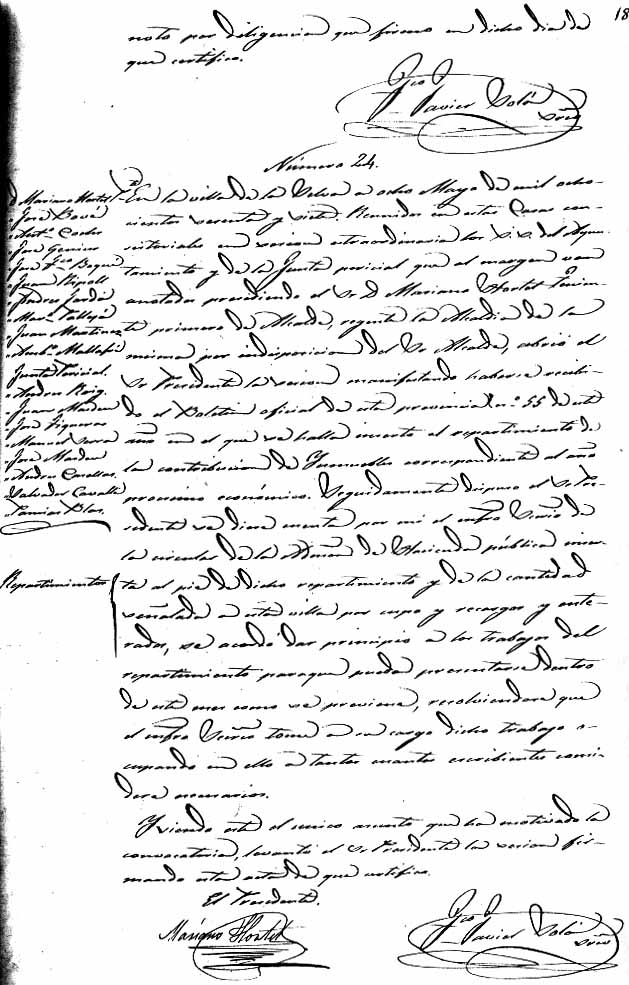 18
noto por diligencia que firmo en dicho dia de
que certifico.
Fco Javier Solá
Srio
Número 24.
D. Mariano Hortet
José Bové
Anto. Coder
José
José Fco.
Juan Ripoll
Andreu Jardí
Mano. Vallejé
Juan Martinez
Anto. Mallafré
Junta Pericial.
Andreu Roig
Juan Masden
José Figueras
Manuel Serra
José Masden
Andreu Cavallas
Salvador Cavallé
Blas.
En la villa de la Selva a ocho Mayo de mil ocho-
cientos sesenta y siete. Reunidos en estas Casas con-
sistoriales en sesion extraordinaria los S.S. del Ayun-
tamiento y de la Junta pericial que al margen van
anotados presidiendo el Sr D Mariano Hortet Tenien-
te primero de Alcalde, regente la Alcaldia de la
misma por indisposicion del Sr Alcalde, abrió el
Sr Presidente la sesion manifestando haberse recibi-
do el Boletin oficial de esta provincia n.º 55 de este
año en el que se halla inserto el repartimiento de
la contribucion de Inmuebles correspondiente al año
procsimo económico. Seguidamente dispuso el Sr Pre-
sidente se diese cuenta por mi el infro Srio de
la circular de la Admon de Hacienda pública inser-
Repartimientos
ta al pie de dicho repartimiento y de la cantidad
señalada a esta villa por cupo y recargos y ente-
rados, se acordó dar principio a los trabajos del
repartimiento paraque pueda presentarse dentro
de este mes como se previene, resolviendose que
el infro Srio tome a su cargo dicho trabajo o-
cupando en ello a tantos cuantos escribientes consi-
dere necesarios.
Y siendo este el unico asunto que ha motivado la
convocatoria, levantó el Sr Presidente la sesion fir-
mando esta acta de que certifico.
El Presidente.
Mariano Hortet
Fco Javier Solá
Srio